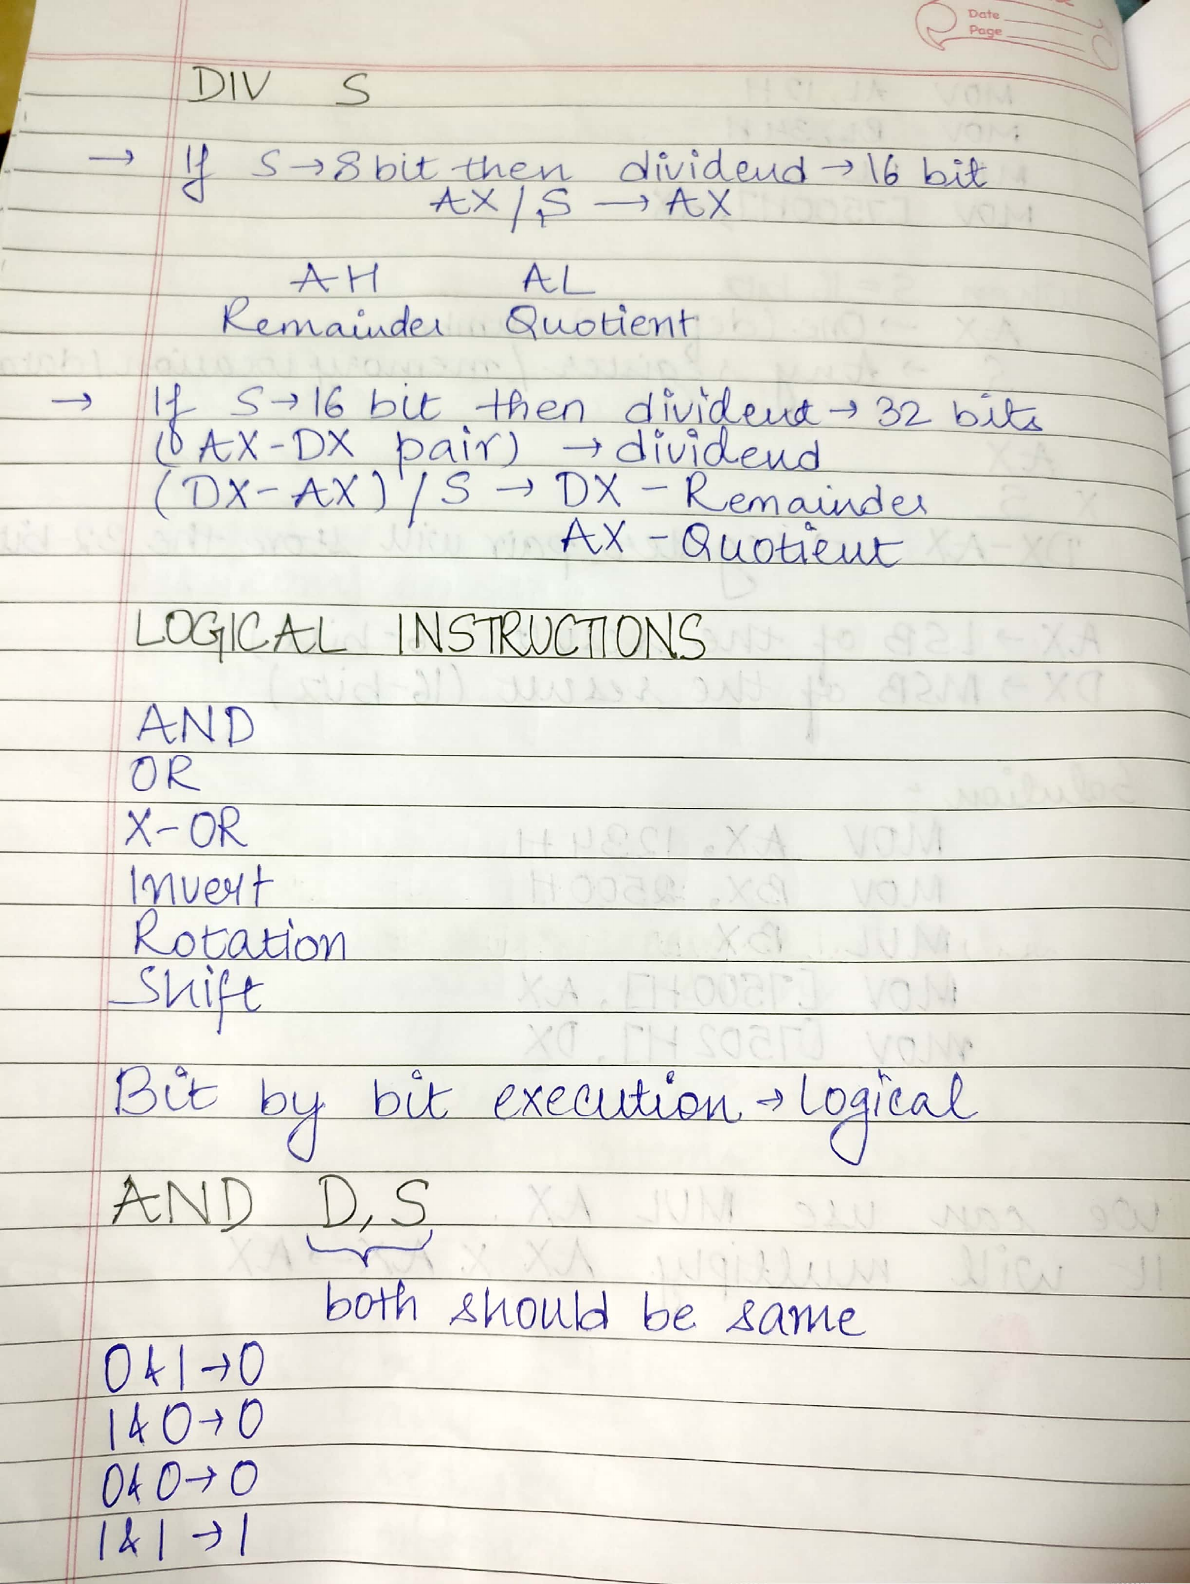 Date
Page
DIV S
→ If S→8 bit then dividend → 16 bit
AX / S → AX
AH AL
Remainder Quotient
→ If S→16 bit then dividend → 32 bits
(AX-DX pair) → dividend
(DX-AX) / S → DX - Remainder
AX - Quotient
LOGICAL INSTRUCTIONS
AND
OR
X-OR
Invert
Rotation
Shift
Bit by bit execution → logical
AND D, S
both should be same
0 & 1 → 0
1 & 0 → 0
0 & 0 → 0
1 & 1 → 1